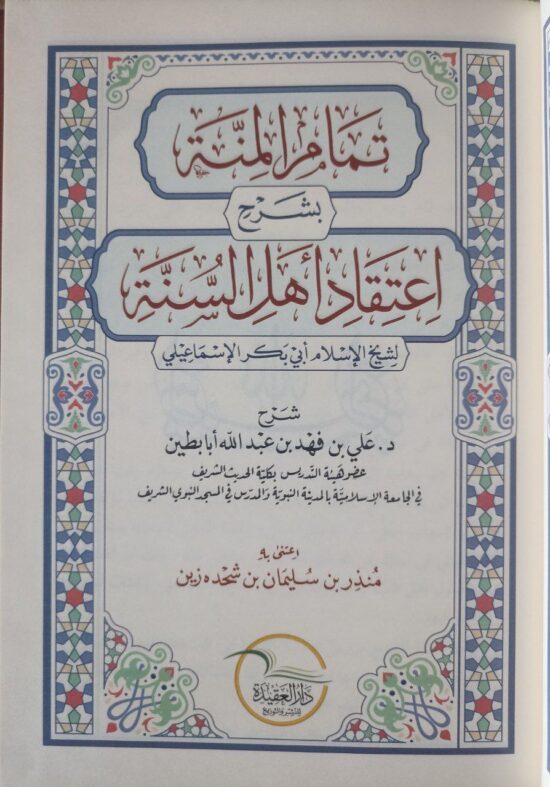 تمام المِنَّة
بشَرْح
اعتِقَاد أهل السُّنَّة
لشيخ الإسلام أبي بكر الإسماعيلي
شَرْح
د. علي بن فهد بن عبد الله أبابطين
عضو هيئة التدريس بكلية الحديث الشريف
في الجامعة الإسلاميّة بالمدينة النبوية والمدرّس في المسجد النبوي الشريف
اعتنى به
مُنذر بن سليمان بن شحده زين
دار العقيدة
للنشر والتوزيع